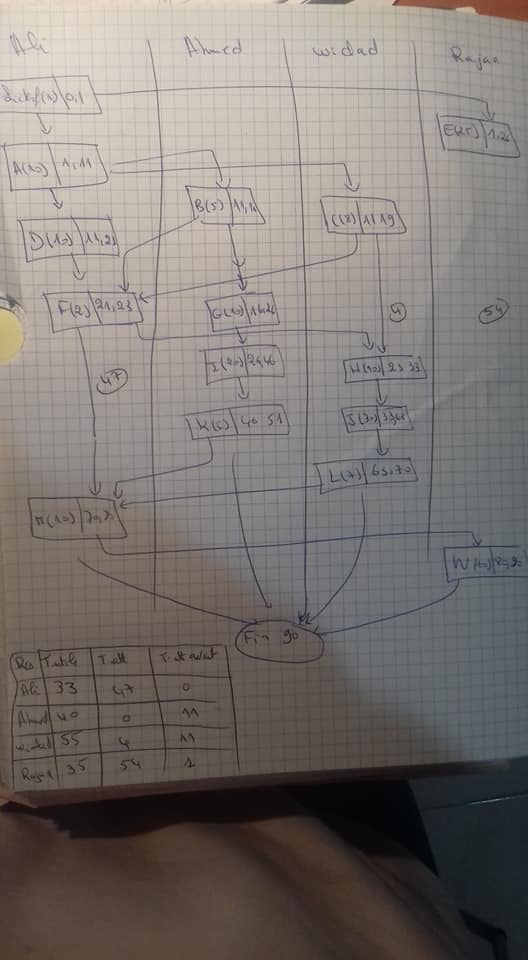 Ali Ahmed widad Rajaa
0,1
E(25) 1,26
A(10) 1,11
B(5) 11,16
C(8) 11 19
D(10) 11,21
F(2) 21,23
G(10) 16 26
4
54
I(20) 26 46
H(10) 23 33
47
K(5) 46 51
J(30) 33,63
L(7) 63,70
M(10)
W(10) 80,90
Fin 90
Res T.utile T.att T.att avant
Ali 33 47 0
Ahmed 40 0 11
widad 55 4 11
Rajaa 35 54 1